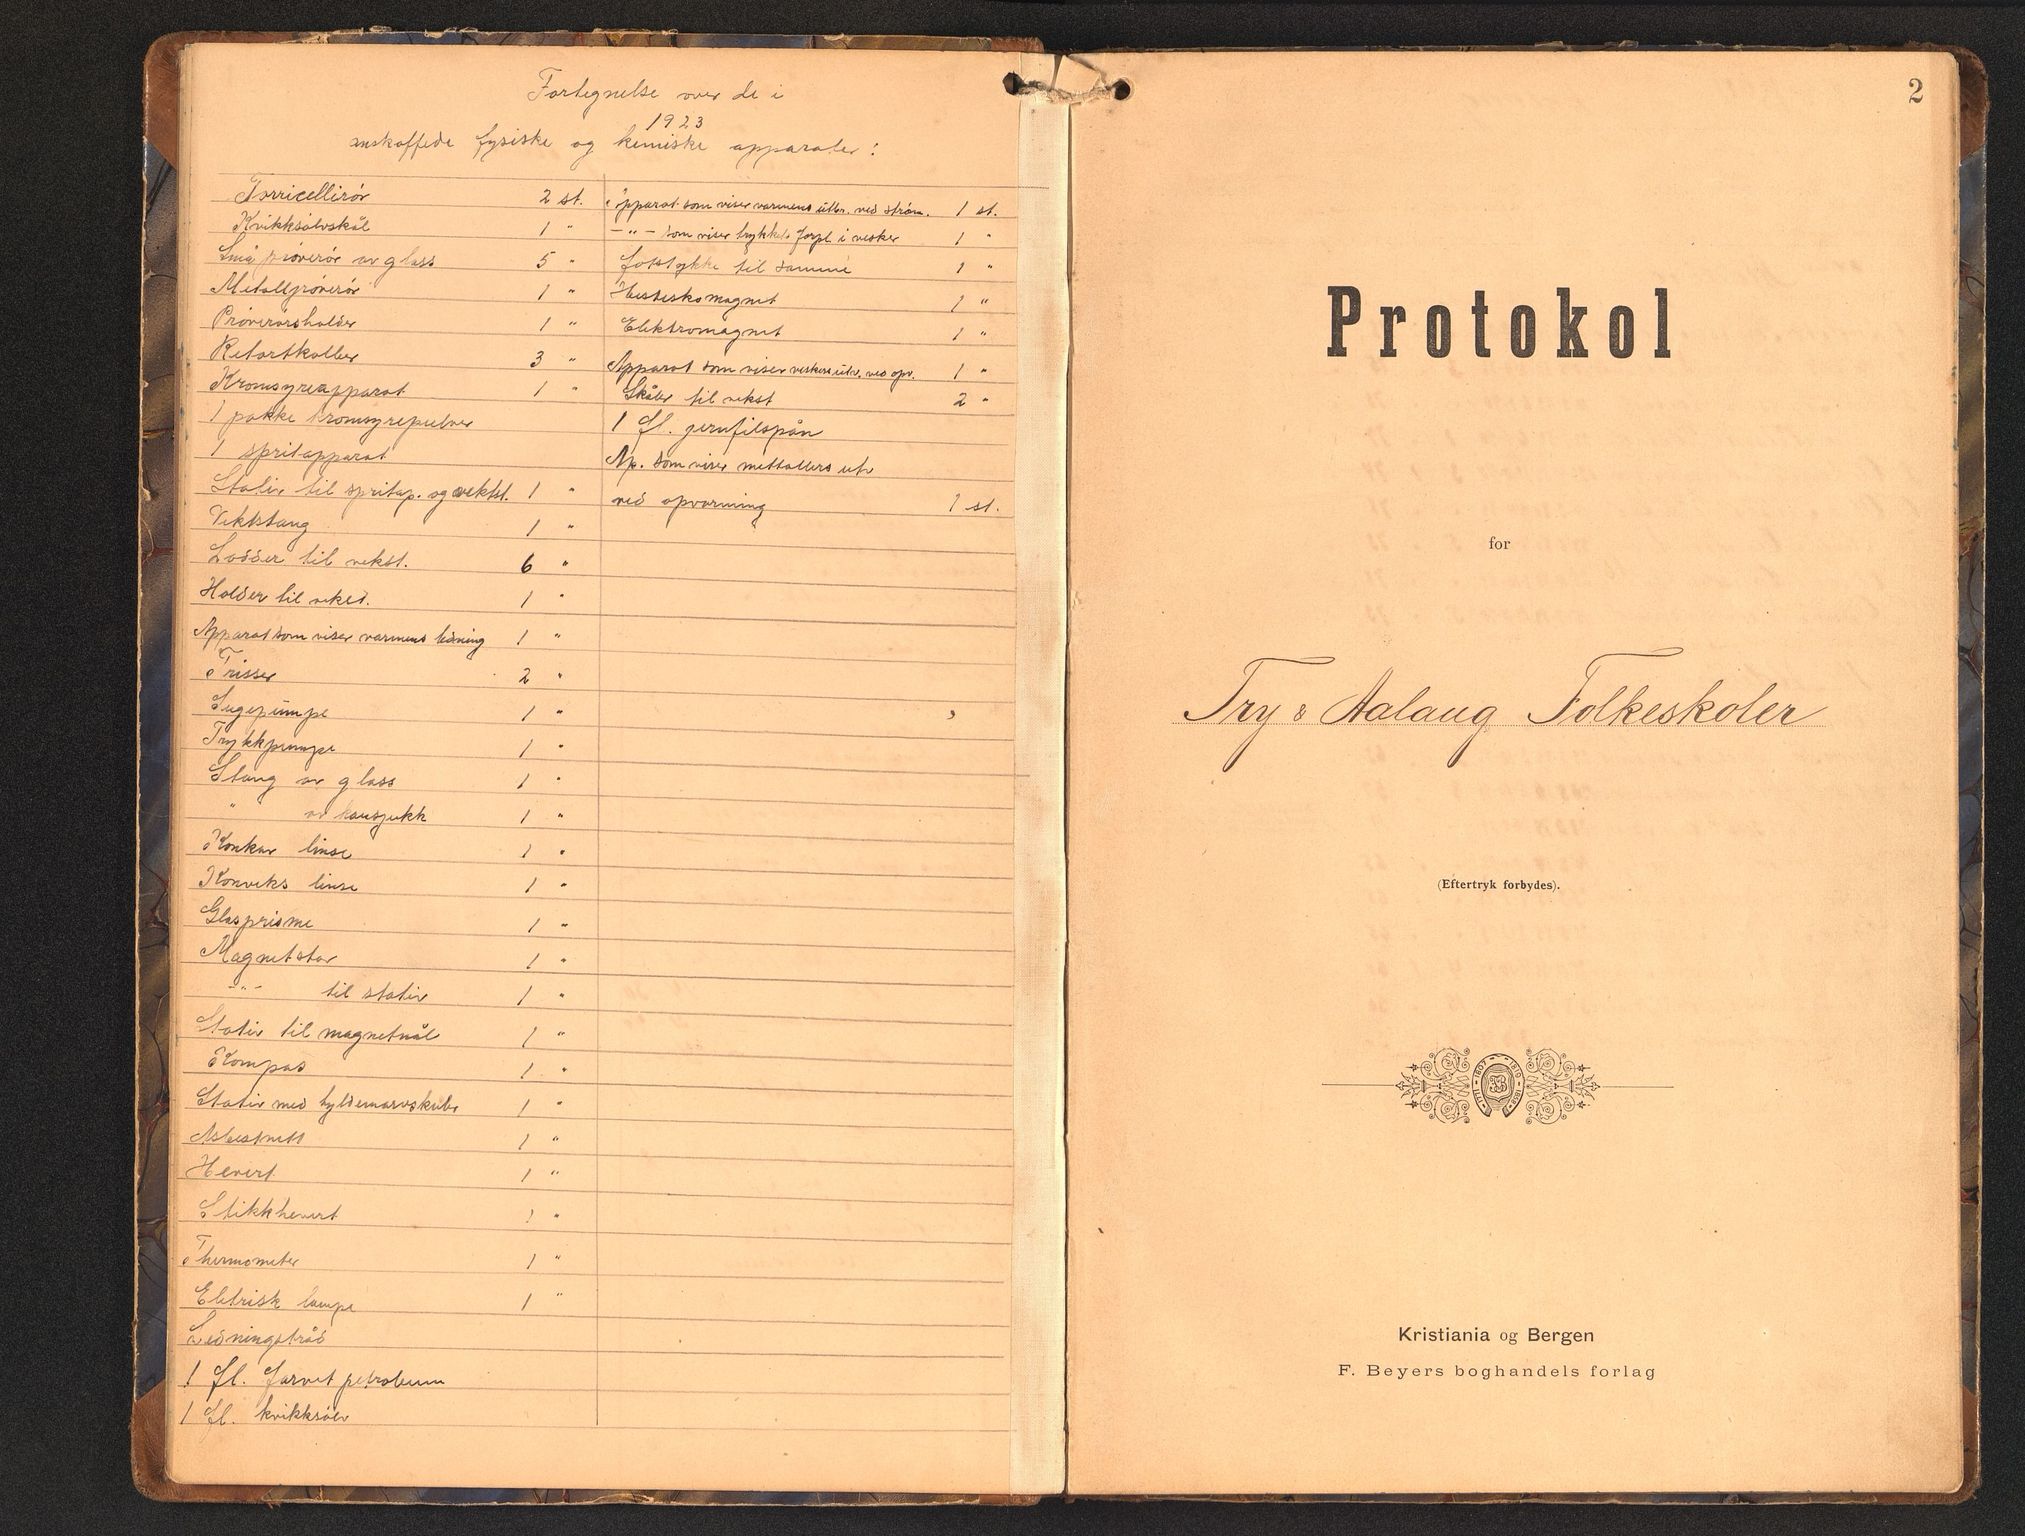 Fortegnelse over de i
1923
anskaffede fysiske og kemiske apparater:
Torricellirør 2 st.
Kvikksølvskål 1 "
Små prøverør av glass 5 "
Metallprøverør 1 "
Prøverørsholder 1 "
Retortkolber 3 "
Kromsyreapparat 1 "
1 pakke kromsyrepulver
1 spritapparat
Stativ til spritap. og vektst. 1 "
Vektstang 1 "
Lodder til vekst. 6 "
Holder til 1 "
Apparat som viser varmens ledning 1 "
Trisser 2 "
Sugepumpe 1 "
Trykkpumpe 1 "
Stang av glass 1 "
" av kausjukk 1 "
Konkav linse 1 "
Konveks linse 1 "
Glasprisme 1 "
Magnetstav 1 "
-"- til stativ 1 "
Stativ til magnetnål 1 "
Kompas 1 "
Stativ med hyldemarvskuler 1 "
Asbestnett 1 "
Hevert 1 "
Stikkhevert 1 "
Thermometer 1 "
Eletrisk lampe 1 "
Ledningstråd
1 fl. farvet petroleum
1 fl. kvikksølv
Apparat som viser varmens utbr. ved strøm. 1 st.
-"- som viser trykkets forpl. i vesker 1 "
fotstykke til samme 1 "
Hesteskomagnet 1 "
Elektromagnet 1 "
Apparat som viser veskers utv. ved opv. 1 "
Skåler til vekst 2 "
1 fl. jernfilspån
Ap. som viser mettallers utv
ved opvarming 1 st.
2
Protokol
for
Try & Aalaug Folkeskoler
(Eftertryk forbydes).
1771 1807 1819 1868
Kristiania og Bergen
F. Beyers boghandels forlag